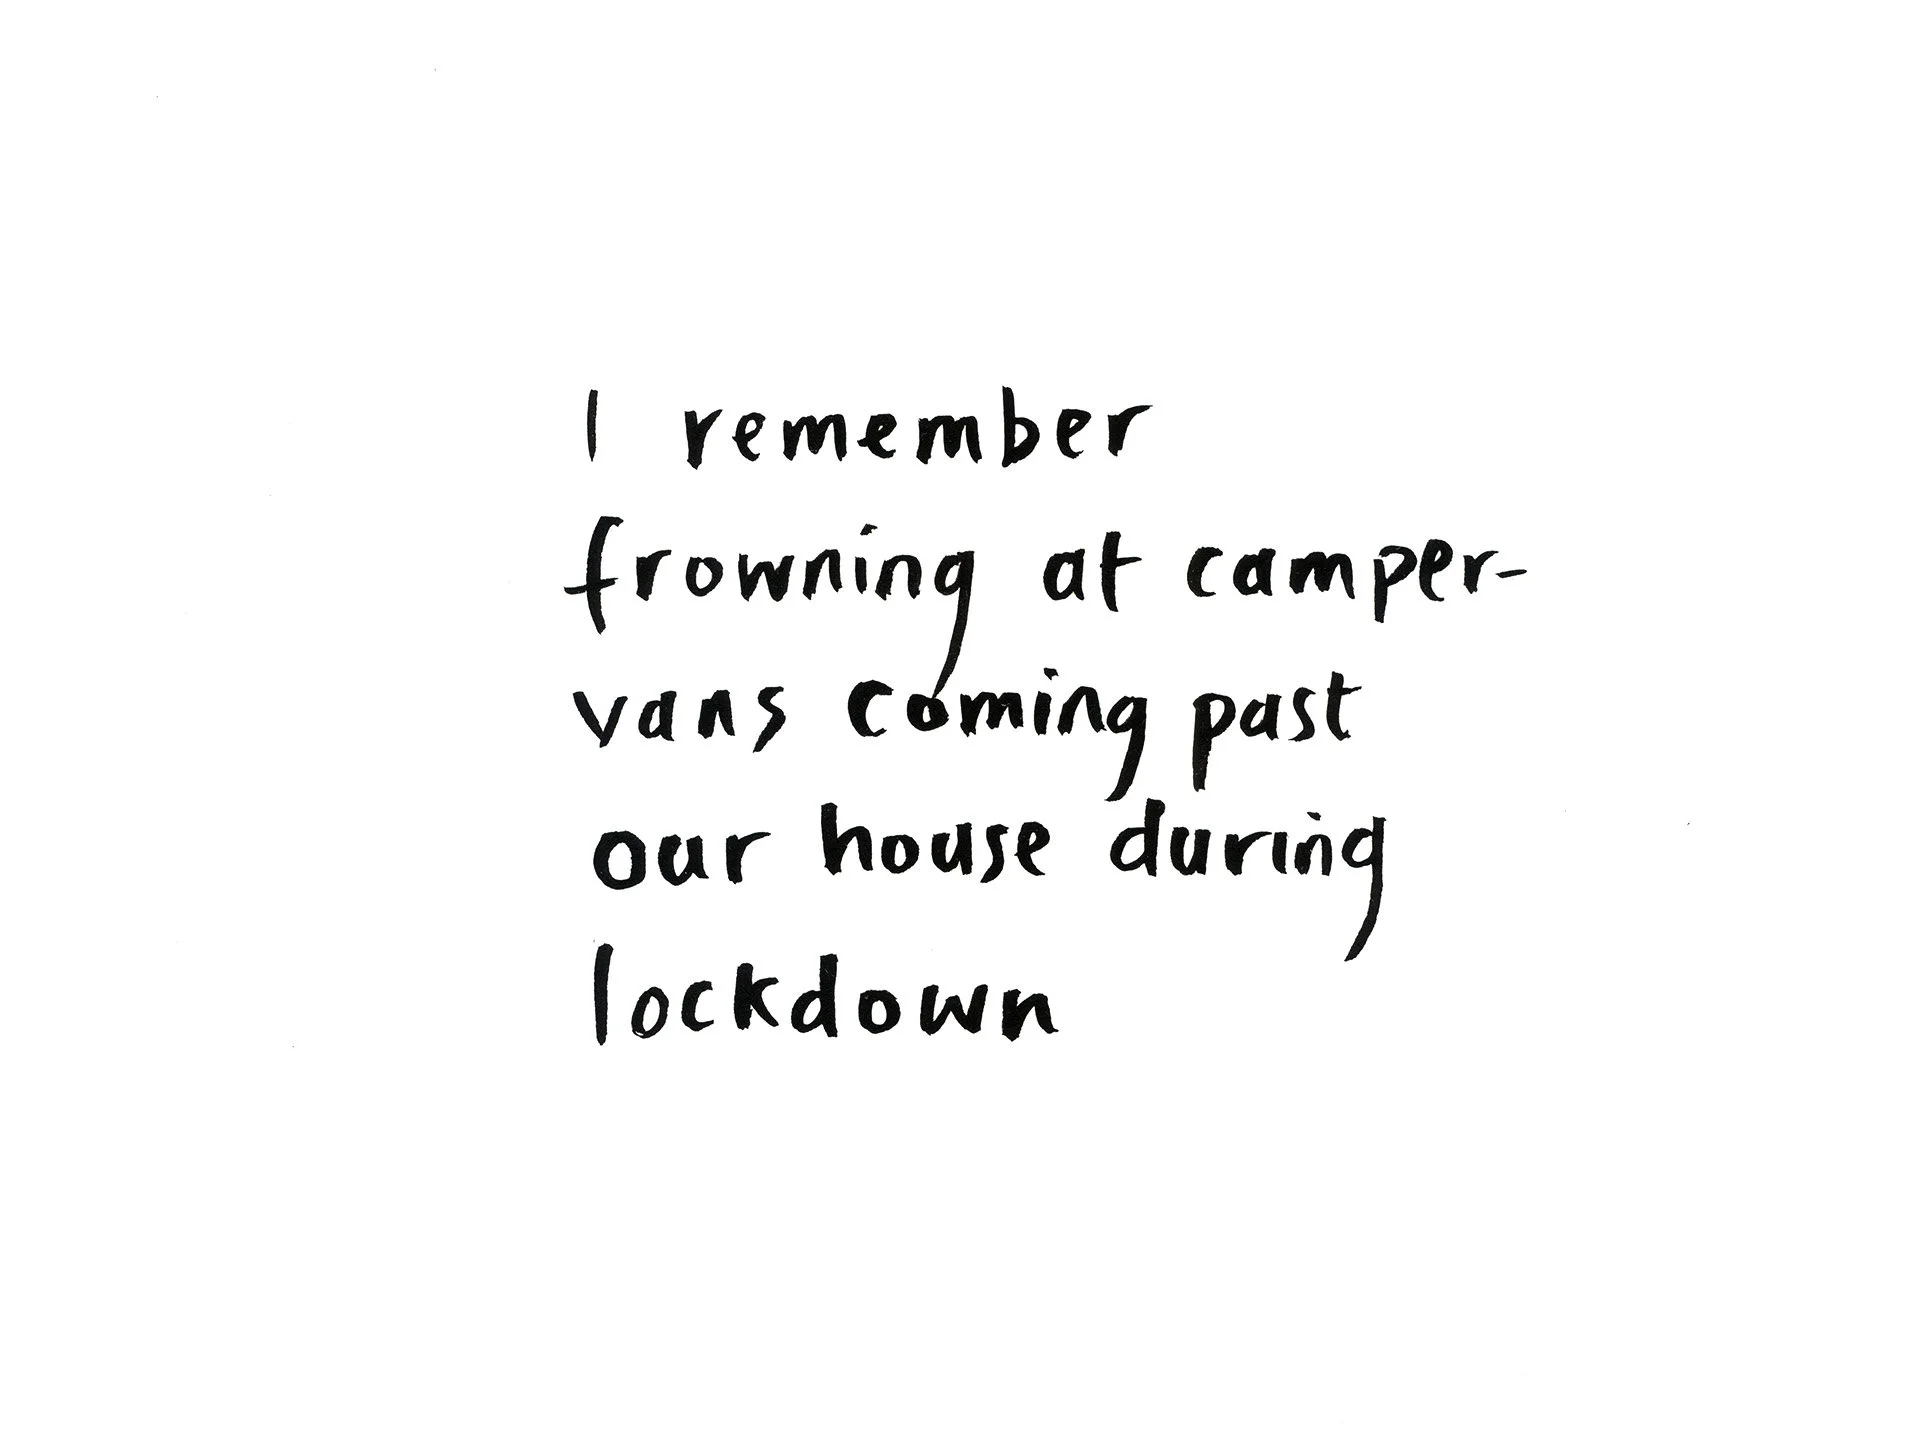 I remember
frowning at camper-
vans coming past
our house during
lockdown